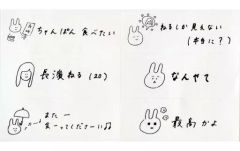 ちゃんぽん 食べたい
長濱ねる(20)
また一
あーってくださーい♫
ねるしか見えない
(本当に?)
なんやて
最高かよ